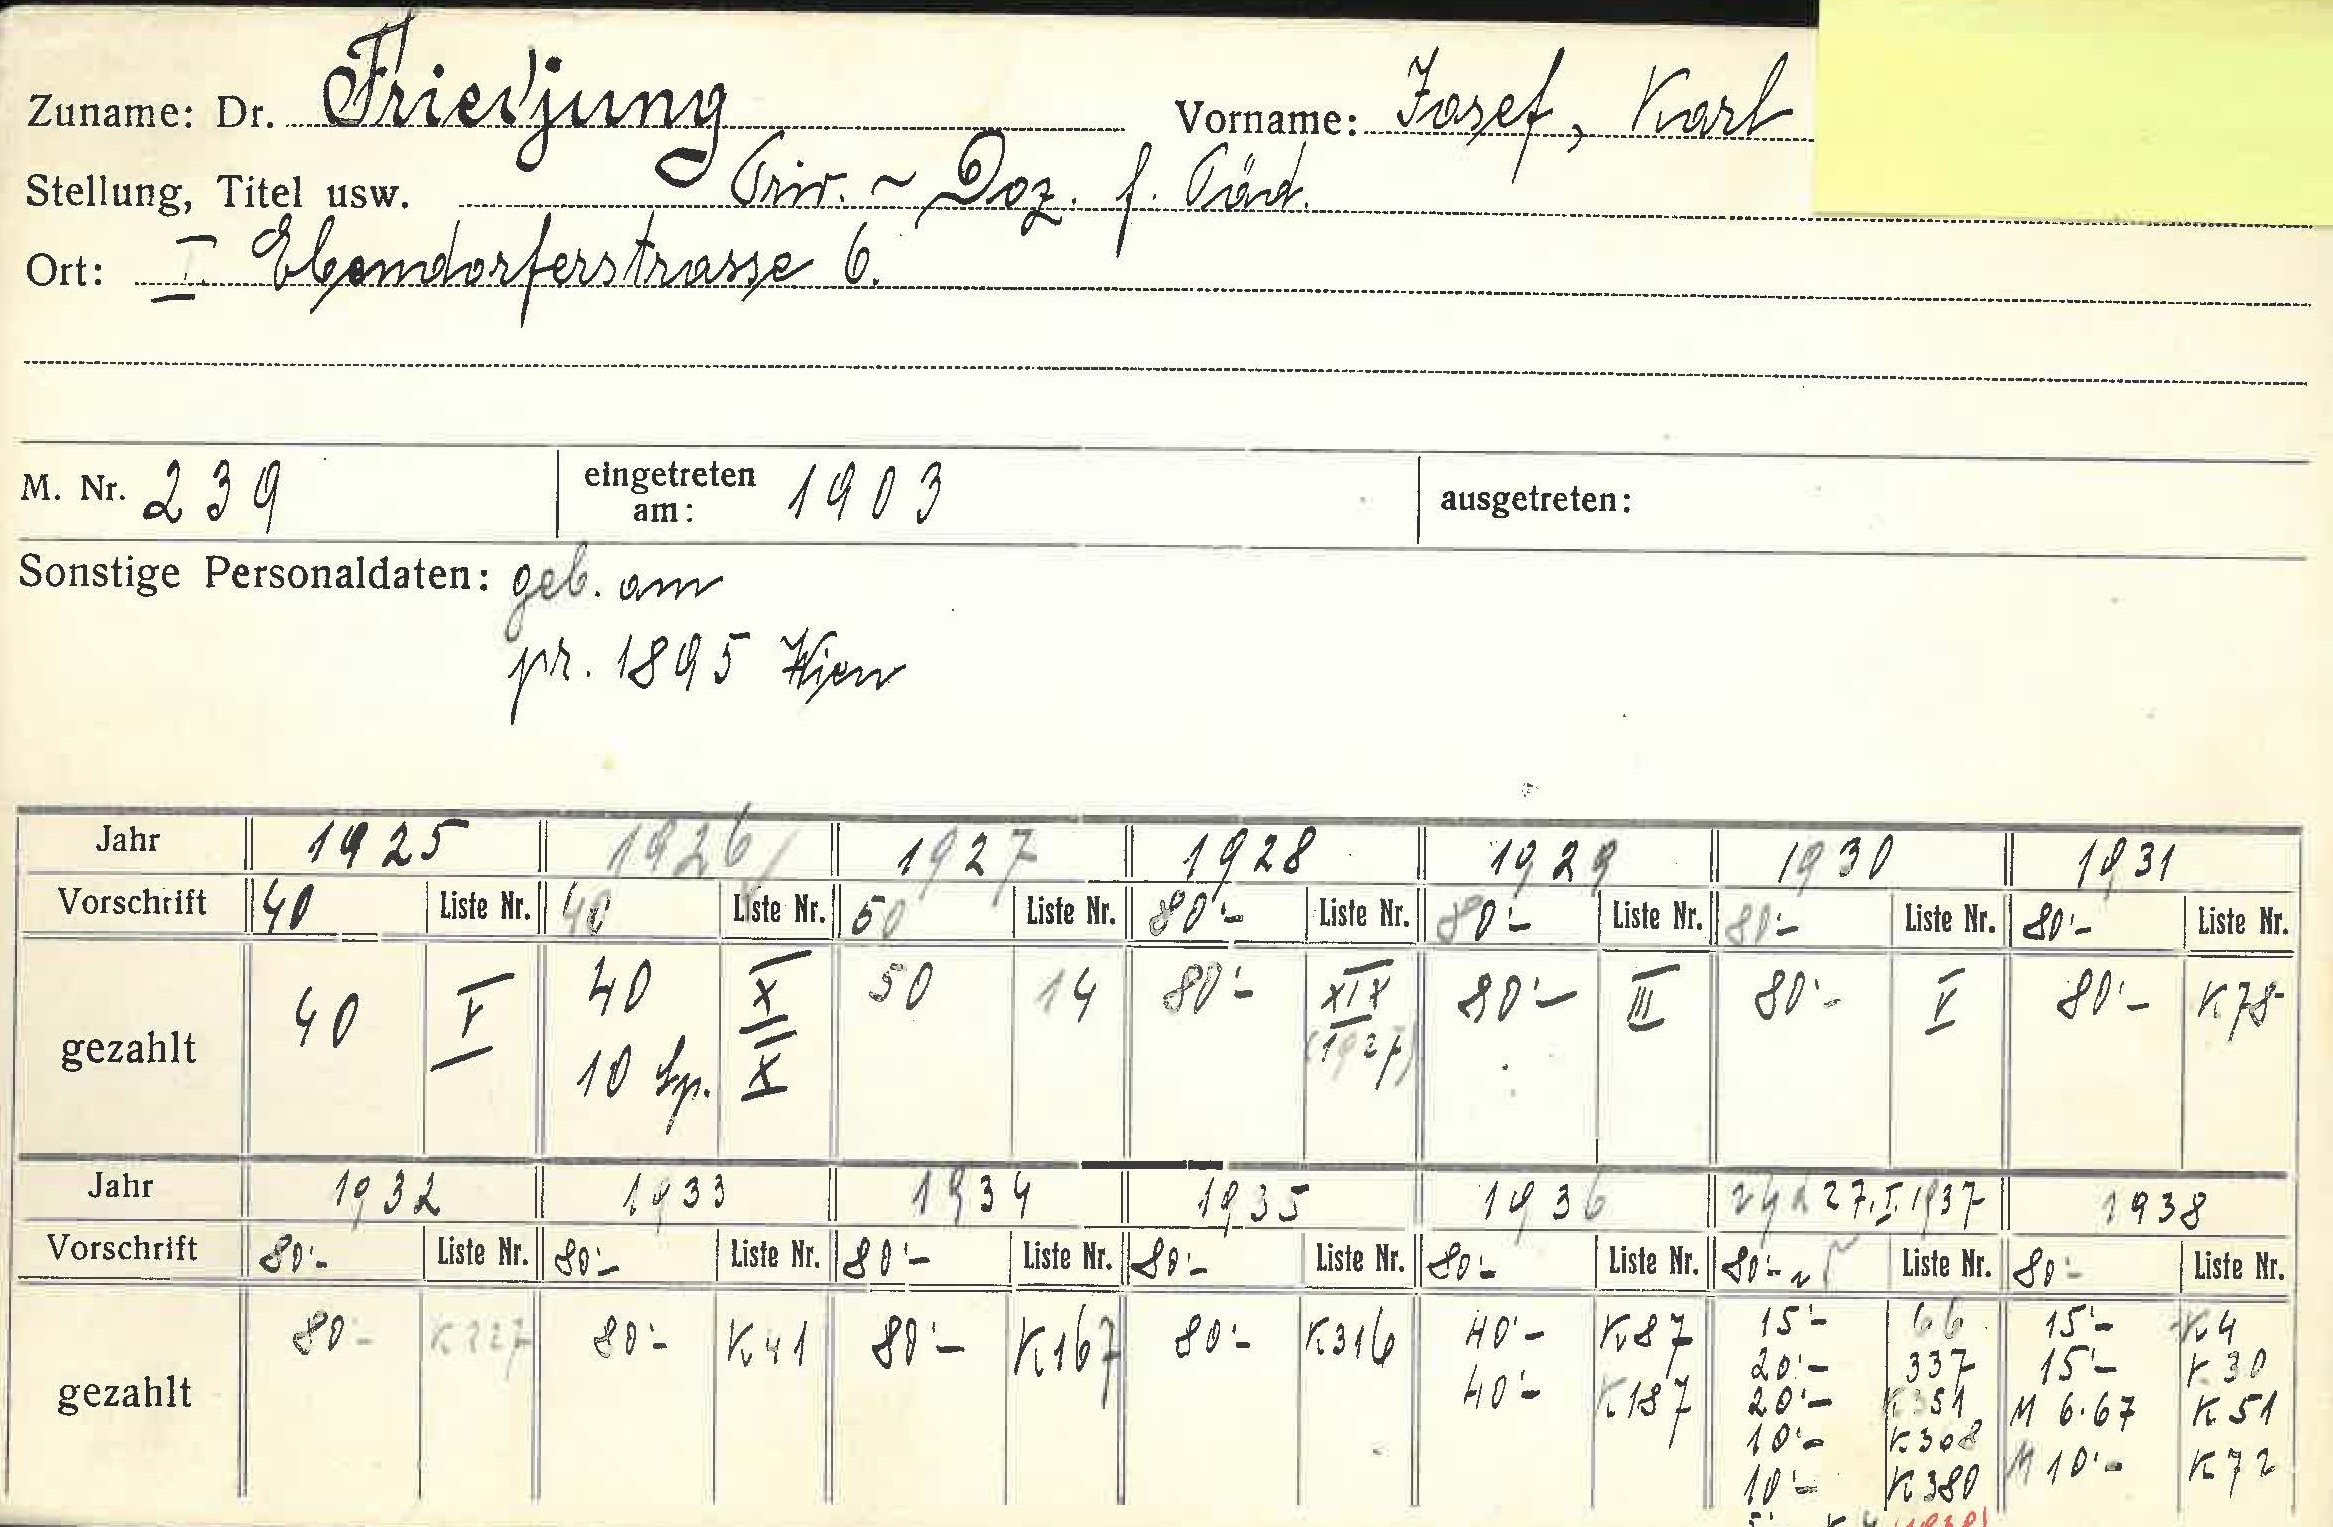 Zuname: Dr. Friedjung Vorname: Josef, Karl
Stellung, Titel usw. Priv.-Doz. f. Päd.
Ort: I. Ebendorferstrasse 6.
M. Nr. 239 eingetreten am: 1903 ausgetreten:
Sonstige Personaldaten: geb. am
pr. 1895 Wien
Jahr 1925 1926 1927 1928 1929 1930 1931
Vorschrift 40 Liste Nr. 40 Liste Nr. 50 Liste Nr. 80'- Liste Nr. 80'- Liste Nr. 80'- Liste Nr. 80'- Liste Nr.
gezahlt 40 V 40 X 50 14 80'- XIX 80'- III 80'- V 80'- K78
10 Sp. X (1927)
Jahr 1932 1933 1934 1935 1936 27.I.1937 1938
Vorschrift 80'- Liste Nr. 80'- Liste Nr. 80'- Liste Nr. 80'- Liste Nr. 80'- Liste Nr. 80'- Liste Nr. 80'- Liste Nr.
gezahlt 80'- 80'- K41 80'- K167 80'- K316 40'- K87 15'- 66 15'- K4
20'- 337 15'- K30
40'- K187 20'- K351 M 6.67 K51
10'- K308
10'- K380 M 10'- K72